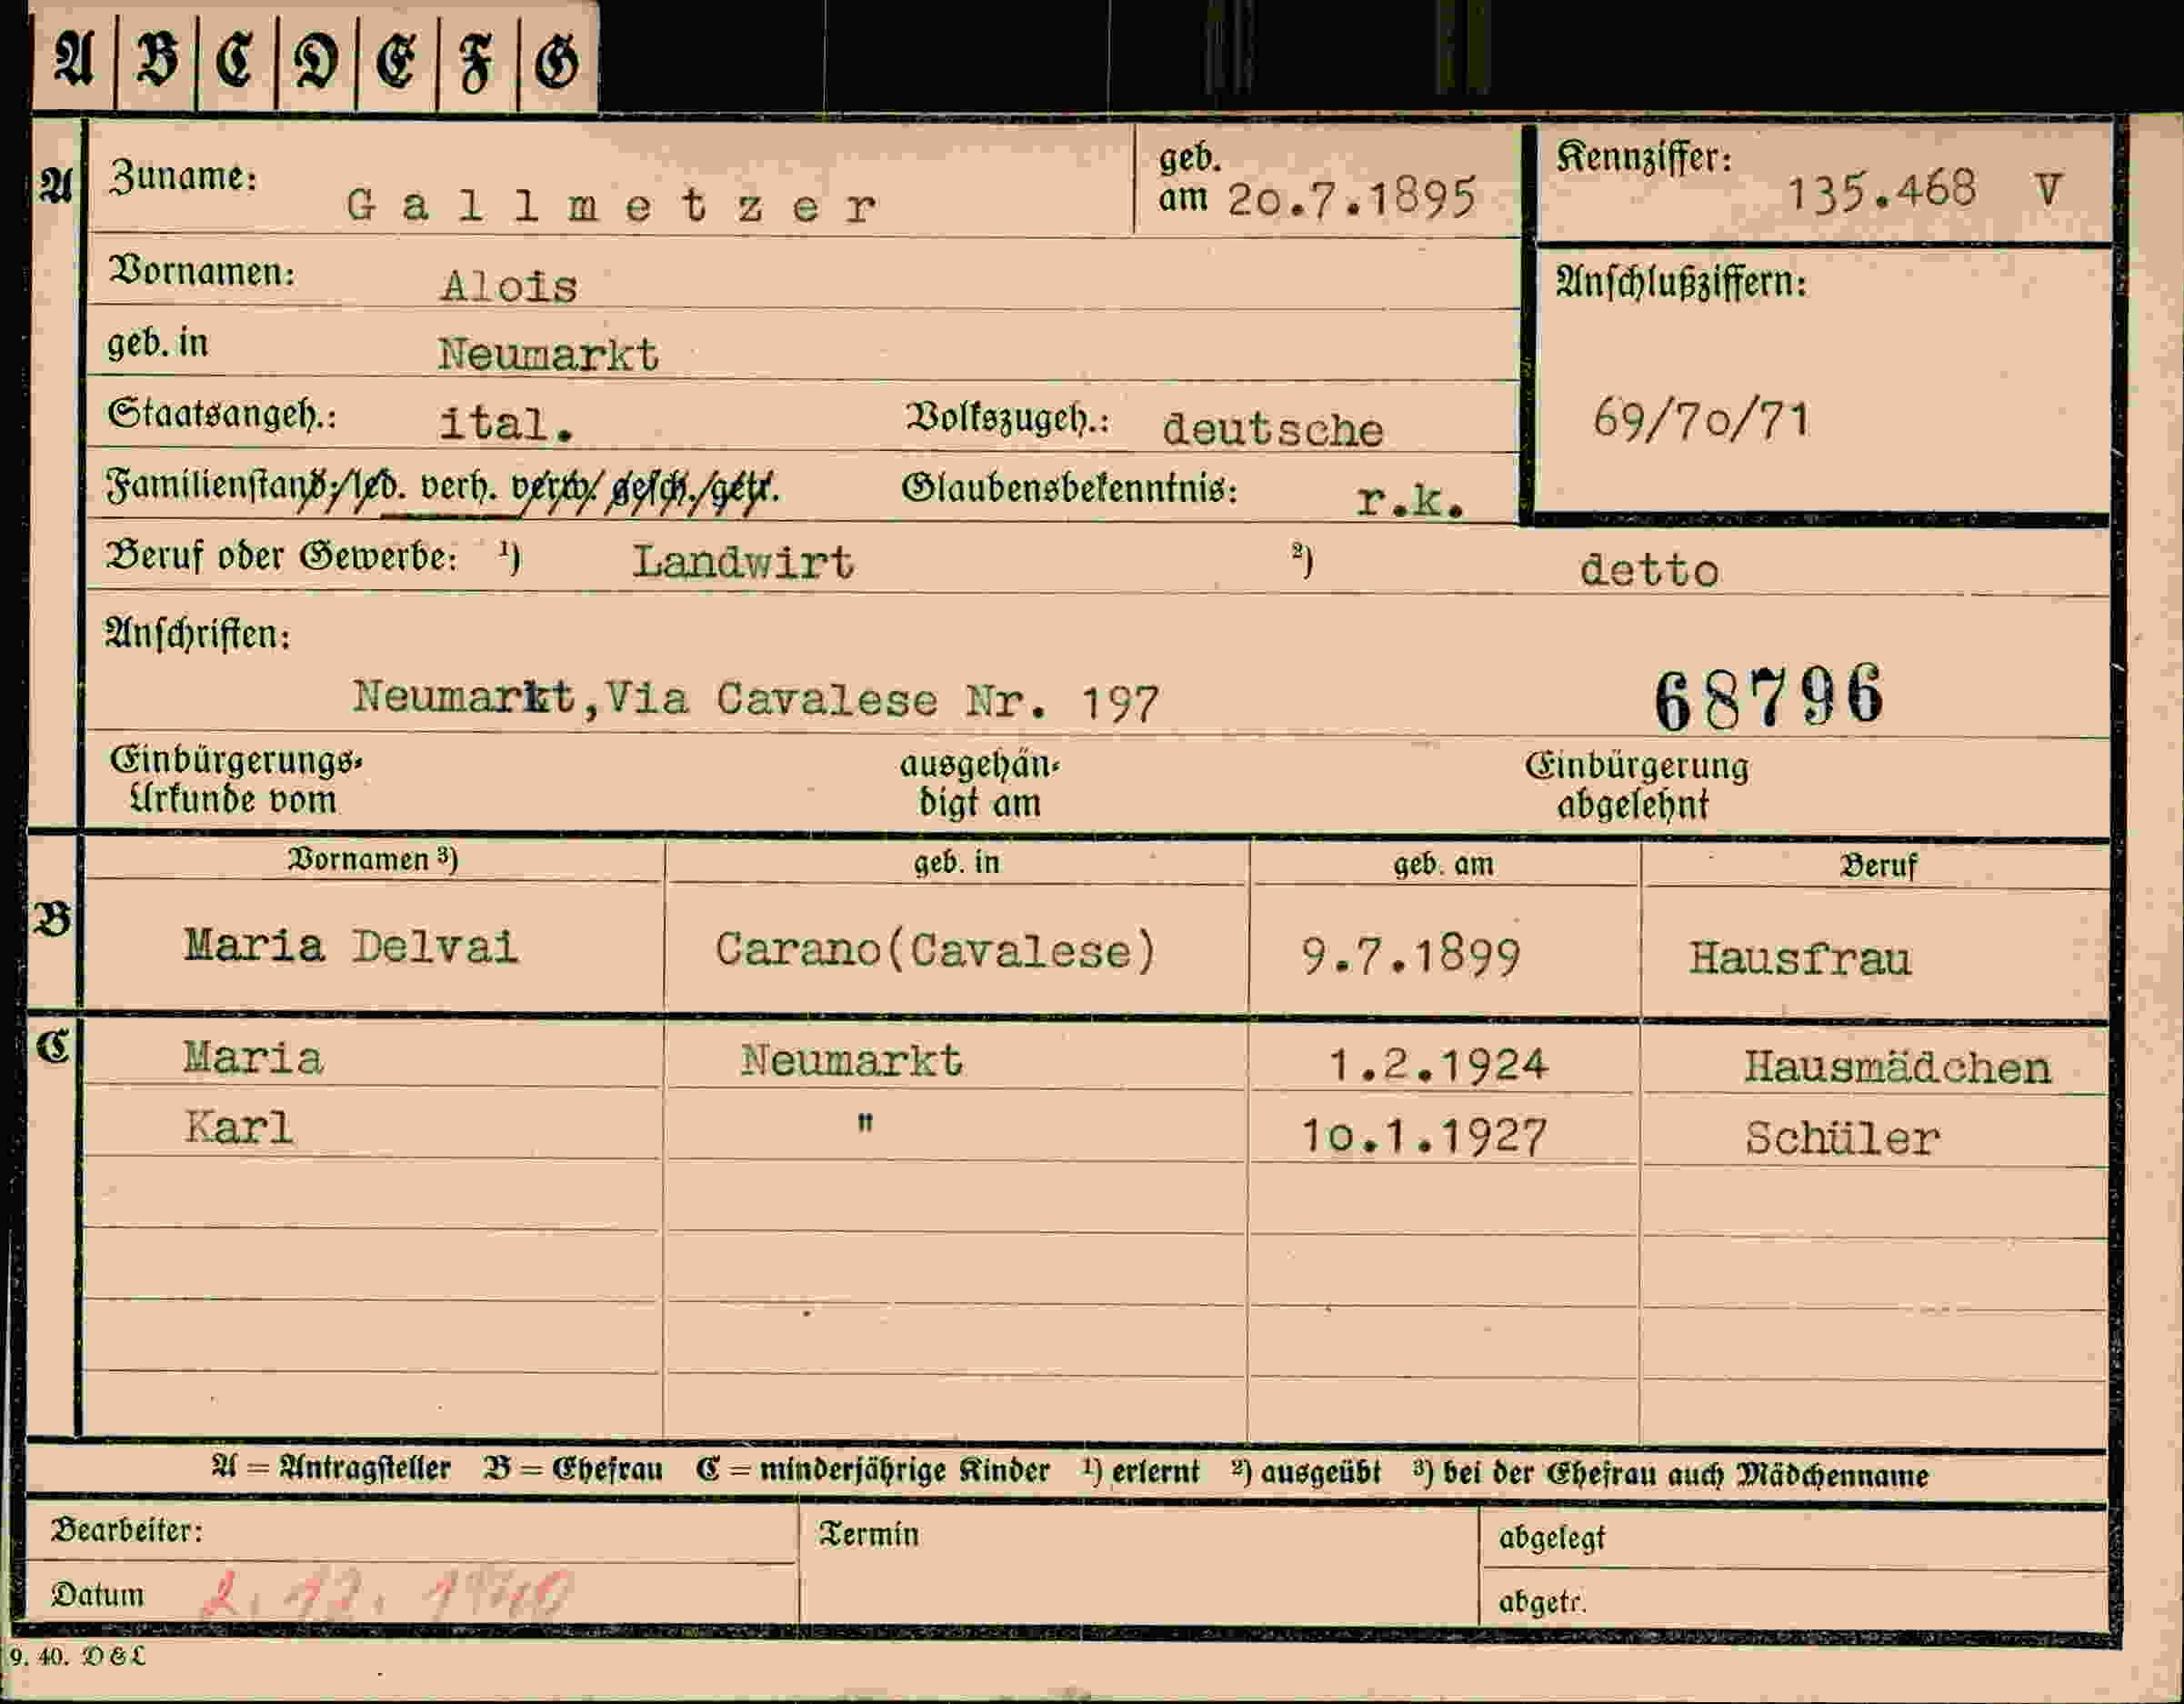 A B C D E F G
A Zuname: Gallmetzer geb. am 20.7.1895 Kennziffer: 135.468 V
Vornamen: Alois Anschlußziffern:
geb. in Neumarkt
Staatsangeh.: ital. Volkszugeh.: deutsche 69/70/71
Familienstand: led. verh. verw. gesch. getr. Glaubensbekenntnis: r.k.
Beruf oder Gewerbe: ¹) Landwirt ²) detto
Anschriften:
Neumarkt,Via Cavalese Nr. 197 68796
Einbürgerungs- Urkunde vom ausgehän- digt am Einbürgerung abgelehnt
Vornamen ³) geb. in geb. am Beruf
B Maria Delvai Carano(Cavalese) 9.7.1899 Hausfrau
C Maria Neumarkt 1.2.1924 Hausmädchen
Karl " 10.1.1927 Schüler
A = Antragsteller B = Ehefrau C = minderjährige Kinder ¹) erlernt ²) ausgeübt ³) bei der Ehefrau auch Mädchenname
Bearbeiter: Termin abgelegt
Datum 2. 12. 1940 abgetr.
9. 40. D & L